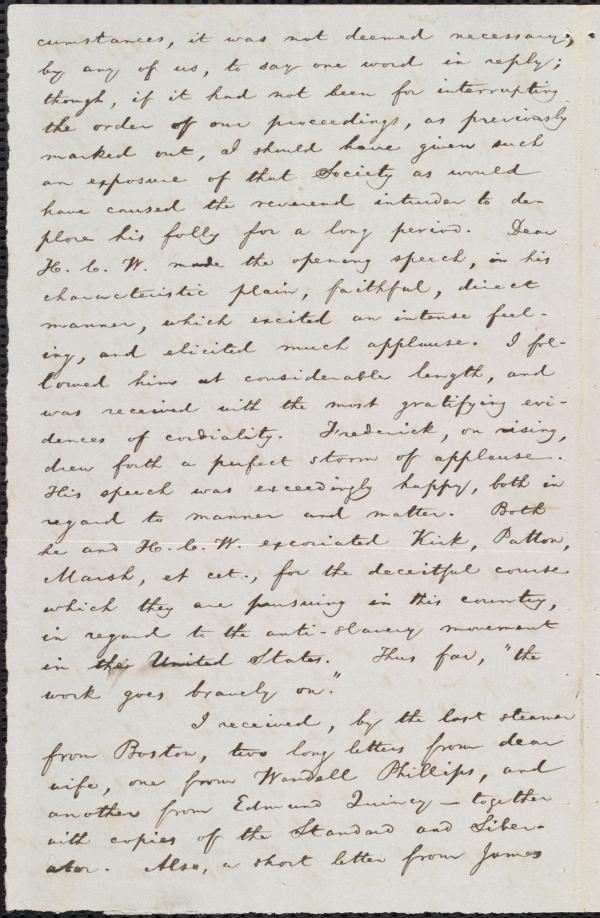 cumstances, it was not deemed necessary,
by any of us, to say one word in reply;
though, if it had not been for interrupting
the order of our proceedings, as previously
marked out, I should have given such
an exposure of that Society as would
have caused the reverend intruder to de-
plore his folly for a long period. Dear
H. C. W. made the opening speech, in his
characteristic plain, faithful, direct
manner, which excited an intense feel-
ing, and elicited much applause. I fol-
lowed him at considerable length, and
was received with the most gratifying evi-
dences of cordiality. Frederick, on rising,
drew forth a perfect storm of applause.
His speech was exceedingly happy, both in
regard to manner and matter. Both
he and H. C. W. excoriated Kirk, Patton,
Marsh, et cet., for the deceitful course
which they are pursuing in this country,
in regard to the anti-slavery movement
in the United States. Thus far, "the
work goes bravely on."
I received, by the last steamer
from Boston, two long letters from dear
wife, one from Wendell Phillips, and
another from Edmund Quincy — together
with copies of the Standard and Liber-
ator. Also, a short letter from James